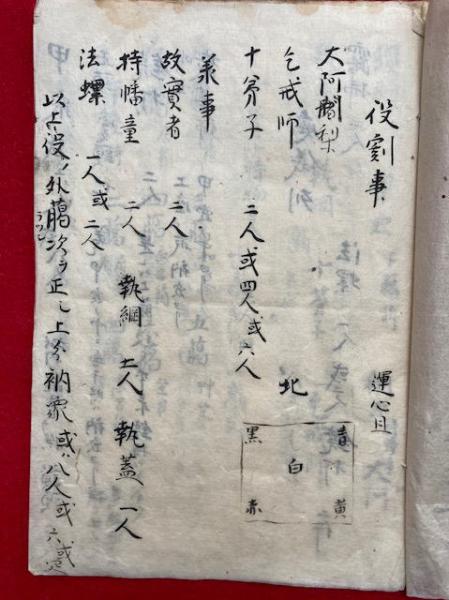 役割事
大阿闍梨
乞戒師
十弟子 二人或四人或六人
運心且
北
青 黄 白 黒 赤
承事
故實者 二人
持幡童 二人 執綱 二人 執蓋 一人
法螺 一人或二人
以上役ノ外﨟次ヲ正シ上分衲衆或ハ八人或六或
ラツシ